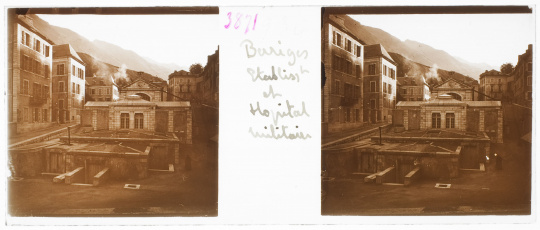 3871
Barèges
Etablisst
et
Hopital
militaire